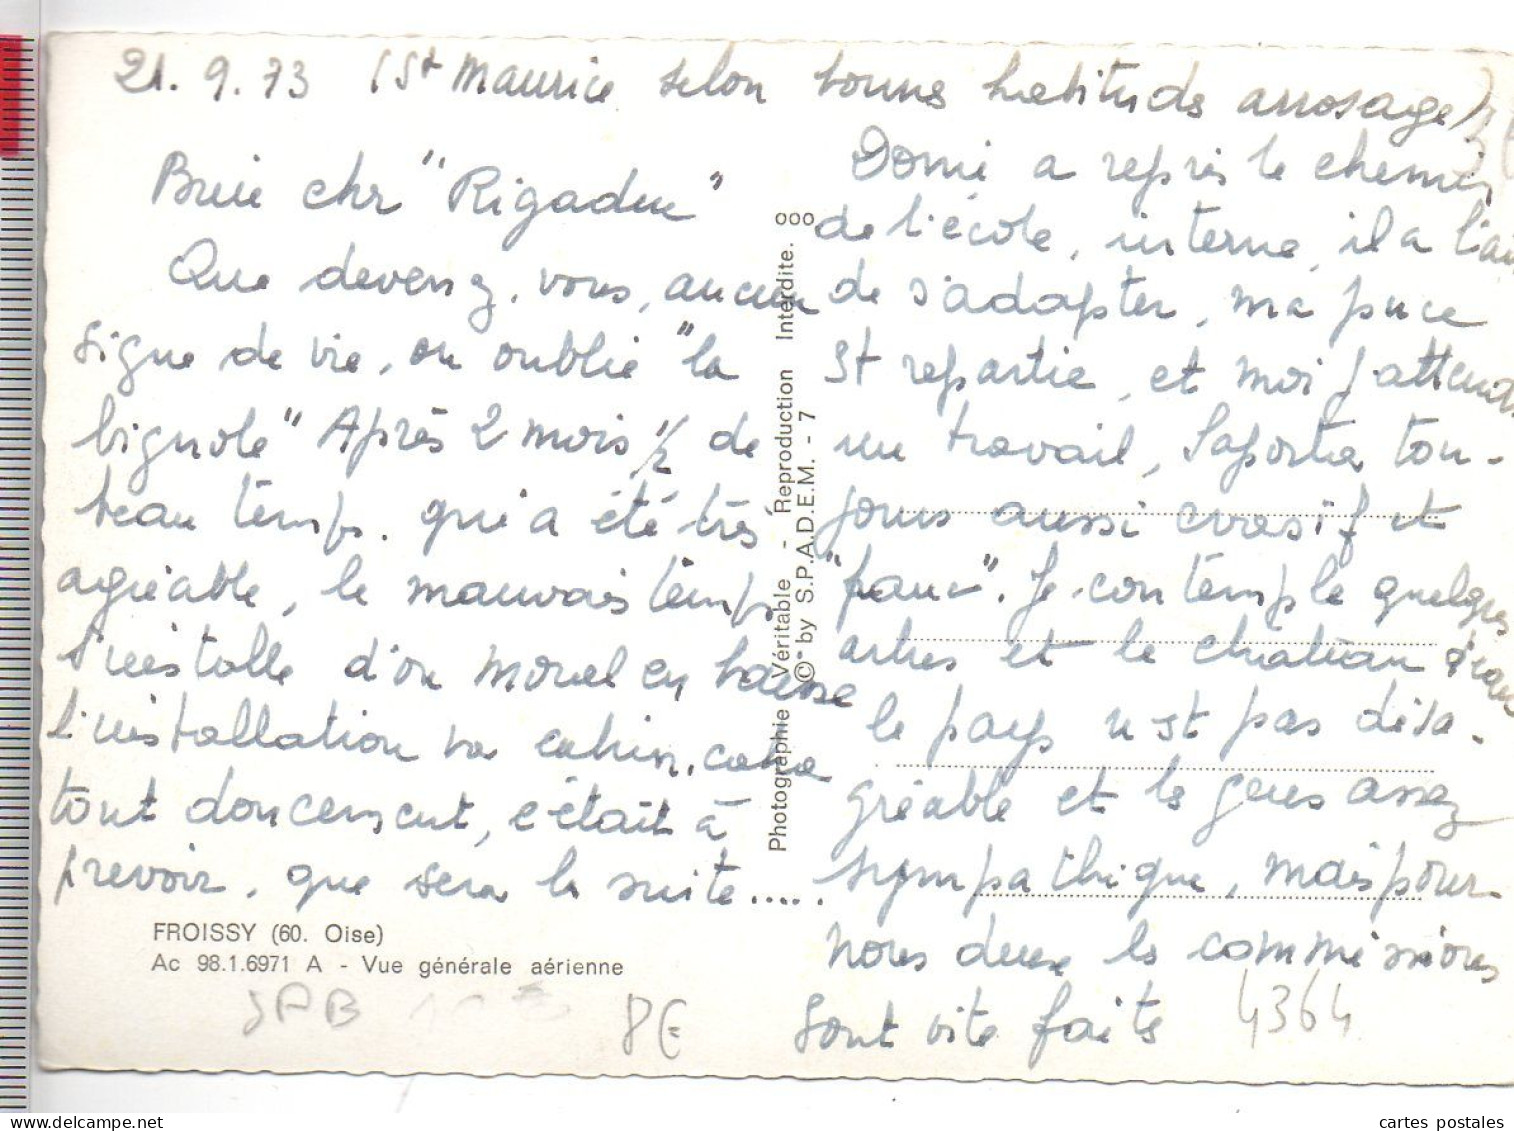 21.9.73 (St Maurice selon bonne habitude arrosage)
chr "Rigadin"
Que devenez, vous, aucun
signe de vie, on oublie "la
bignole" Après 2 mois 1/2 de
beau temps. qui a été très
agréable, le mauvais temps
s'installe d'où moral en baisse
l'installation va cahin. caha
tout doucement, c'était à
prevoir. que sera la suite.....
Domi a repris le chemin
de l'école, interne, il a l'air
de s'adapter, ma puce
st repartie, et moi j'attends
un travail, Saporta tou-
jours aussi évasif et
"faux". Je contemple quelques
arbres et le château d'eau
le pays n'est pas désa-
gréable et les gens assez
sympathique, mais pour
nous deux les commissions
sont vite faites
FROISSY (60. Oise)
Ac 98.1.6971 A - Vue générale aérienne
Photographie Véritable - Reproduction Interdite.
© by S.P.A.D.E.M. - 7
8€
4364
cartes postales